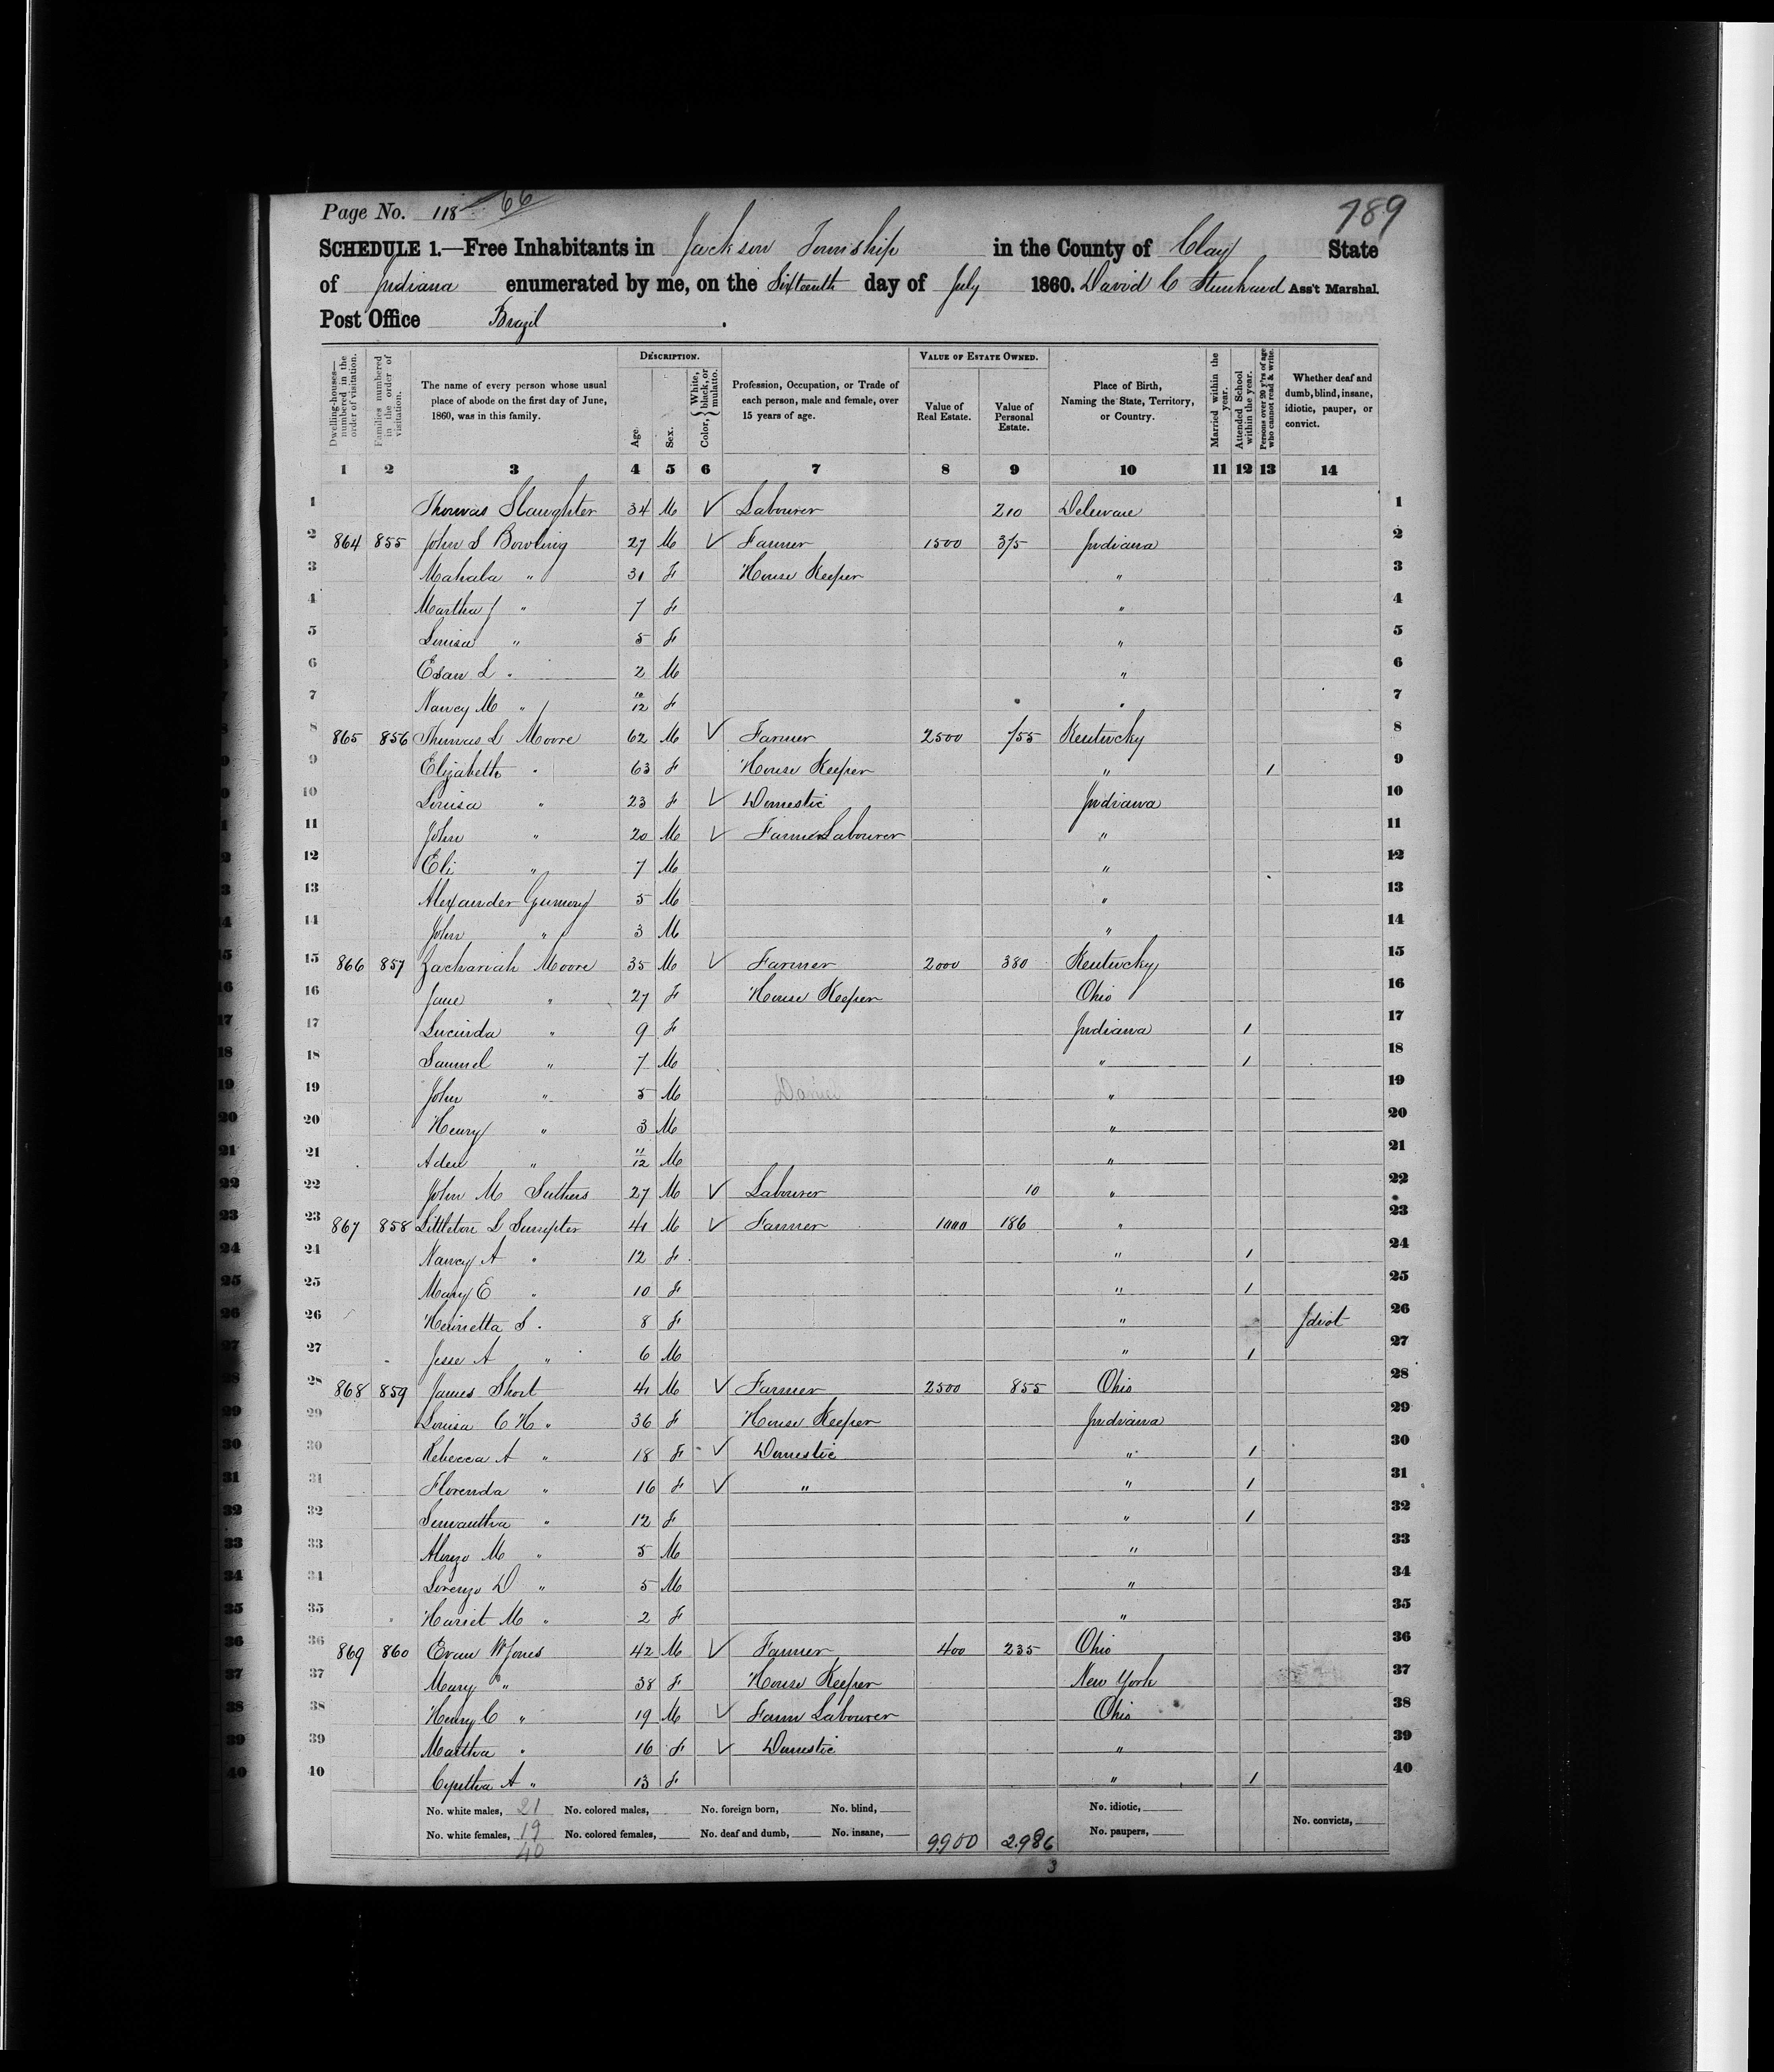 Page No. 118 66
789
SCHEDULE 1.—Free Inhabitants in Jackson Township in the County of Clay State
of Indiana enumerated by me, on the Sixteenth day of July 1860. David C Ass't Marshal.
Post Office Brazil.
DESCRIPTION. VALUE OF ESTATE OWNED.
Dwelling-houses—numbered in the order of visitation. Families numbered in the order of visitation. The name of every person whose usual place of abode on the first day of June, 1860, was in this family. Age. Sex. Color, { White, black, or mulatto. Profession, Occupation, or Trade of each person, male and female, over 15 years of age. Value of Real Estate. Value of Personal Estate. Place of Birth, Naming the State, Territory, or Country. Married within the year. Attended School within the year. Persons over 20 y'rs of age who cannot read & write. Whether deaf and dumb, blind, insane, idiotic, pauper, or convict.
1 2 3 4 5 6 7 8 9 10 11 12 13 14
1 Thomas Slaughter 34 M √ Labourer 210 Deleware 1
2 864 855 John S Bowling 27 M √ Farmer 1500 375 Indiana 2
3 Mahala " 31 F House Keeper " 3
4 Martha J " 7 F " 4
5 Louisa " 5 F " 5
6 Esau L " 2 M " 6
7 Nancy M " 10/12 F " 7
8 865 856 Thomas L Moore 62 M √ Farmer 2500 755 Kentucky 8
9 Elizabeth " 63 F House Keeper " 1 9
10 Louisa " 23 F √ Domestic Indiana 10
11 John " 20 M √ Farm Labourer " 11
12 Eli " 7 M " 12
13 Alexander 5 M " 13
14 John " 3 M " 14
15 866 857 Zachariah Moore 35 M √ Farmer 2000 380 Kentucky 15
16 Jane " 27 F House Keeper Ohio 16
17 Lucinda " 9 F Indiana 1 17
18 Samuel " 7 M " 1 18
19 John " 5 M Daniel " 19
20 Henry " 3 M " 20
21 Aden " 11/12 M " 21
22 John M Suthers 27 M √ Labourer 10 " 22
23 867 858 Littleton L Sumpter 41 M √ Farmer 1000 186 " 23
24 Nancy A " 12 F " 1 24
25 Mary E " 10 F " 1 25
26 Henrietta S " 8 F " Idiot 26
27 Jesse A " 6 M " 1 27
28 868 859 James Short 41 M √ Farmer 2500 855 Ohio 28
29 Louisa C H " 36 F House Keeper Indiana 29
30 Rebecca A " 18 F √ Domestic " 1 30
31 Florenda " 16 F √ " " 1 31
32 Semantha " 12 F " 1 32
33 Alonzo M " 5 M " 33
34 Lorenzo D " 5 M " 34
35 Harriet M " 2 F " 35
36 869 860 Evan W Jones 42 M √ Farmer 400 235 Ohio 36
37 Mary " 38 F House Keeper New York 37
38 Henry C " 19 M √ Farm Labourer Ohio 38
39 Martha " 16 F √ Domestic " 39
40 Cyntha A " 13 F " 1 40
No. white males, 21 No. colored males, No. foreign born, No. blind, No. idiotic,
No. white females, 19 No. colored females, No. deaf and dumb, No. insane, 9900 2.986 No. paupers, No. convicts,
40 3